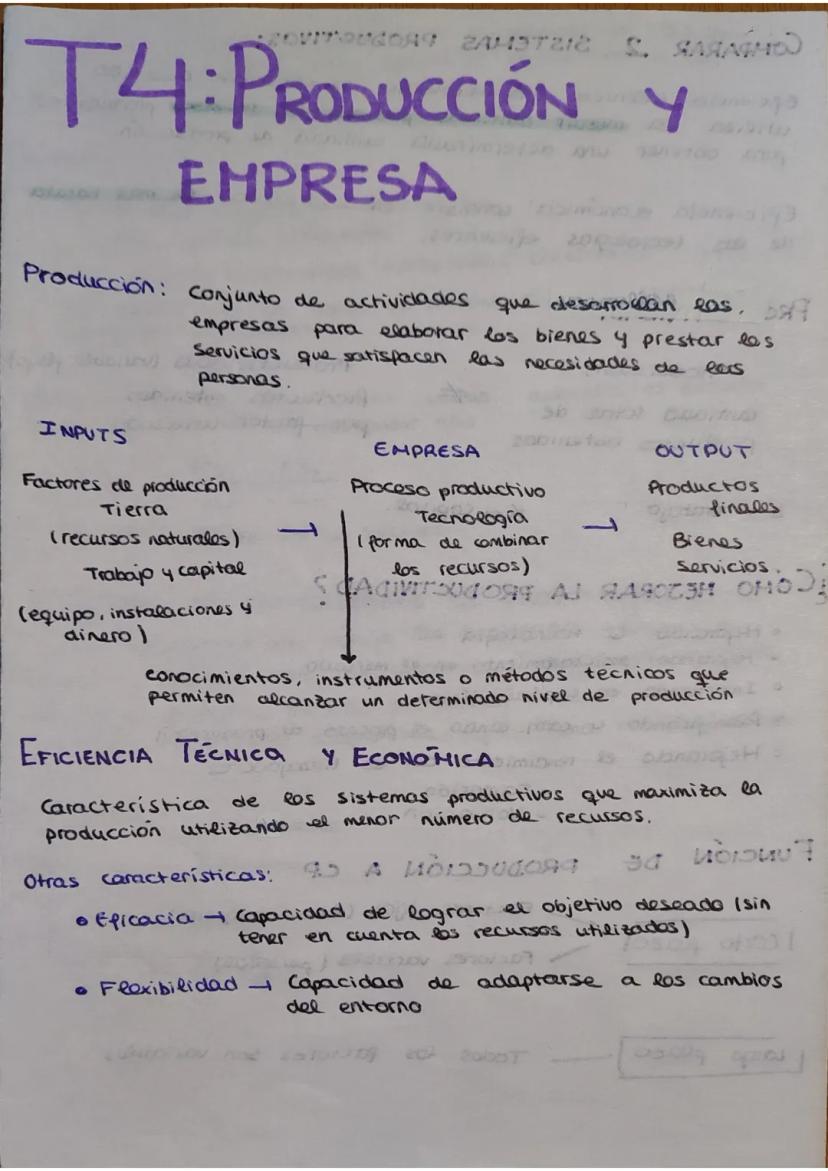 T4: PRODUCCIÓN Y
EMPRESA
Producción: Conjunto de actividades que desarrollan las
empresas para elaborar los bienes y prestar los
servicios que satisfacen las necesidades de las
personas.
INPUTS
Factores de producción
Tierra
(recursos naturales)
Trabajo y capital
(equipo, instalaciones y
dinero)
→
EMPRESA
Proceso productivo
Tecnología
(forma de combinar
los recursos)
→
OUTPUT
Productos
finales
Bienes
Servicios.
conocimientos, instrumentos o métodos técnicos que
permiten alcanzar un determinado nivel de producción
EFICIENCIA TÉCNICA Y ECONÓMICA
Característica de los sistemas productivos que maximiza la
producción utilizando el menor número de recursos.
Otras características:
• Eficacia → Capacidad de lograr el objetivo deseado (sin
tener en cuenta los recursos utilizados)
• Flexibilidad → Capacidad de adaptarse a los cambios
del entorno